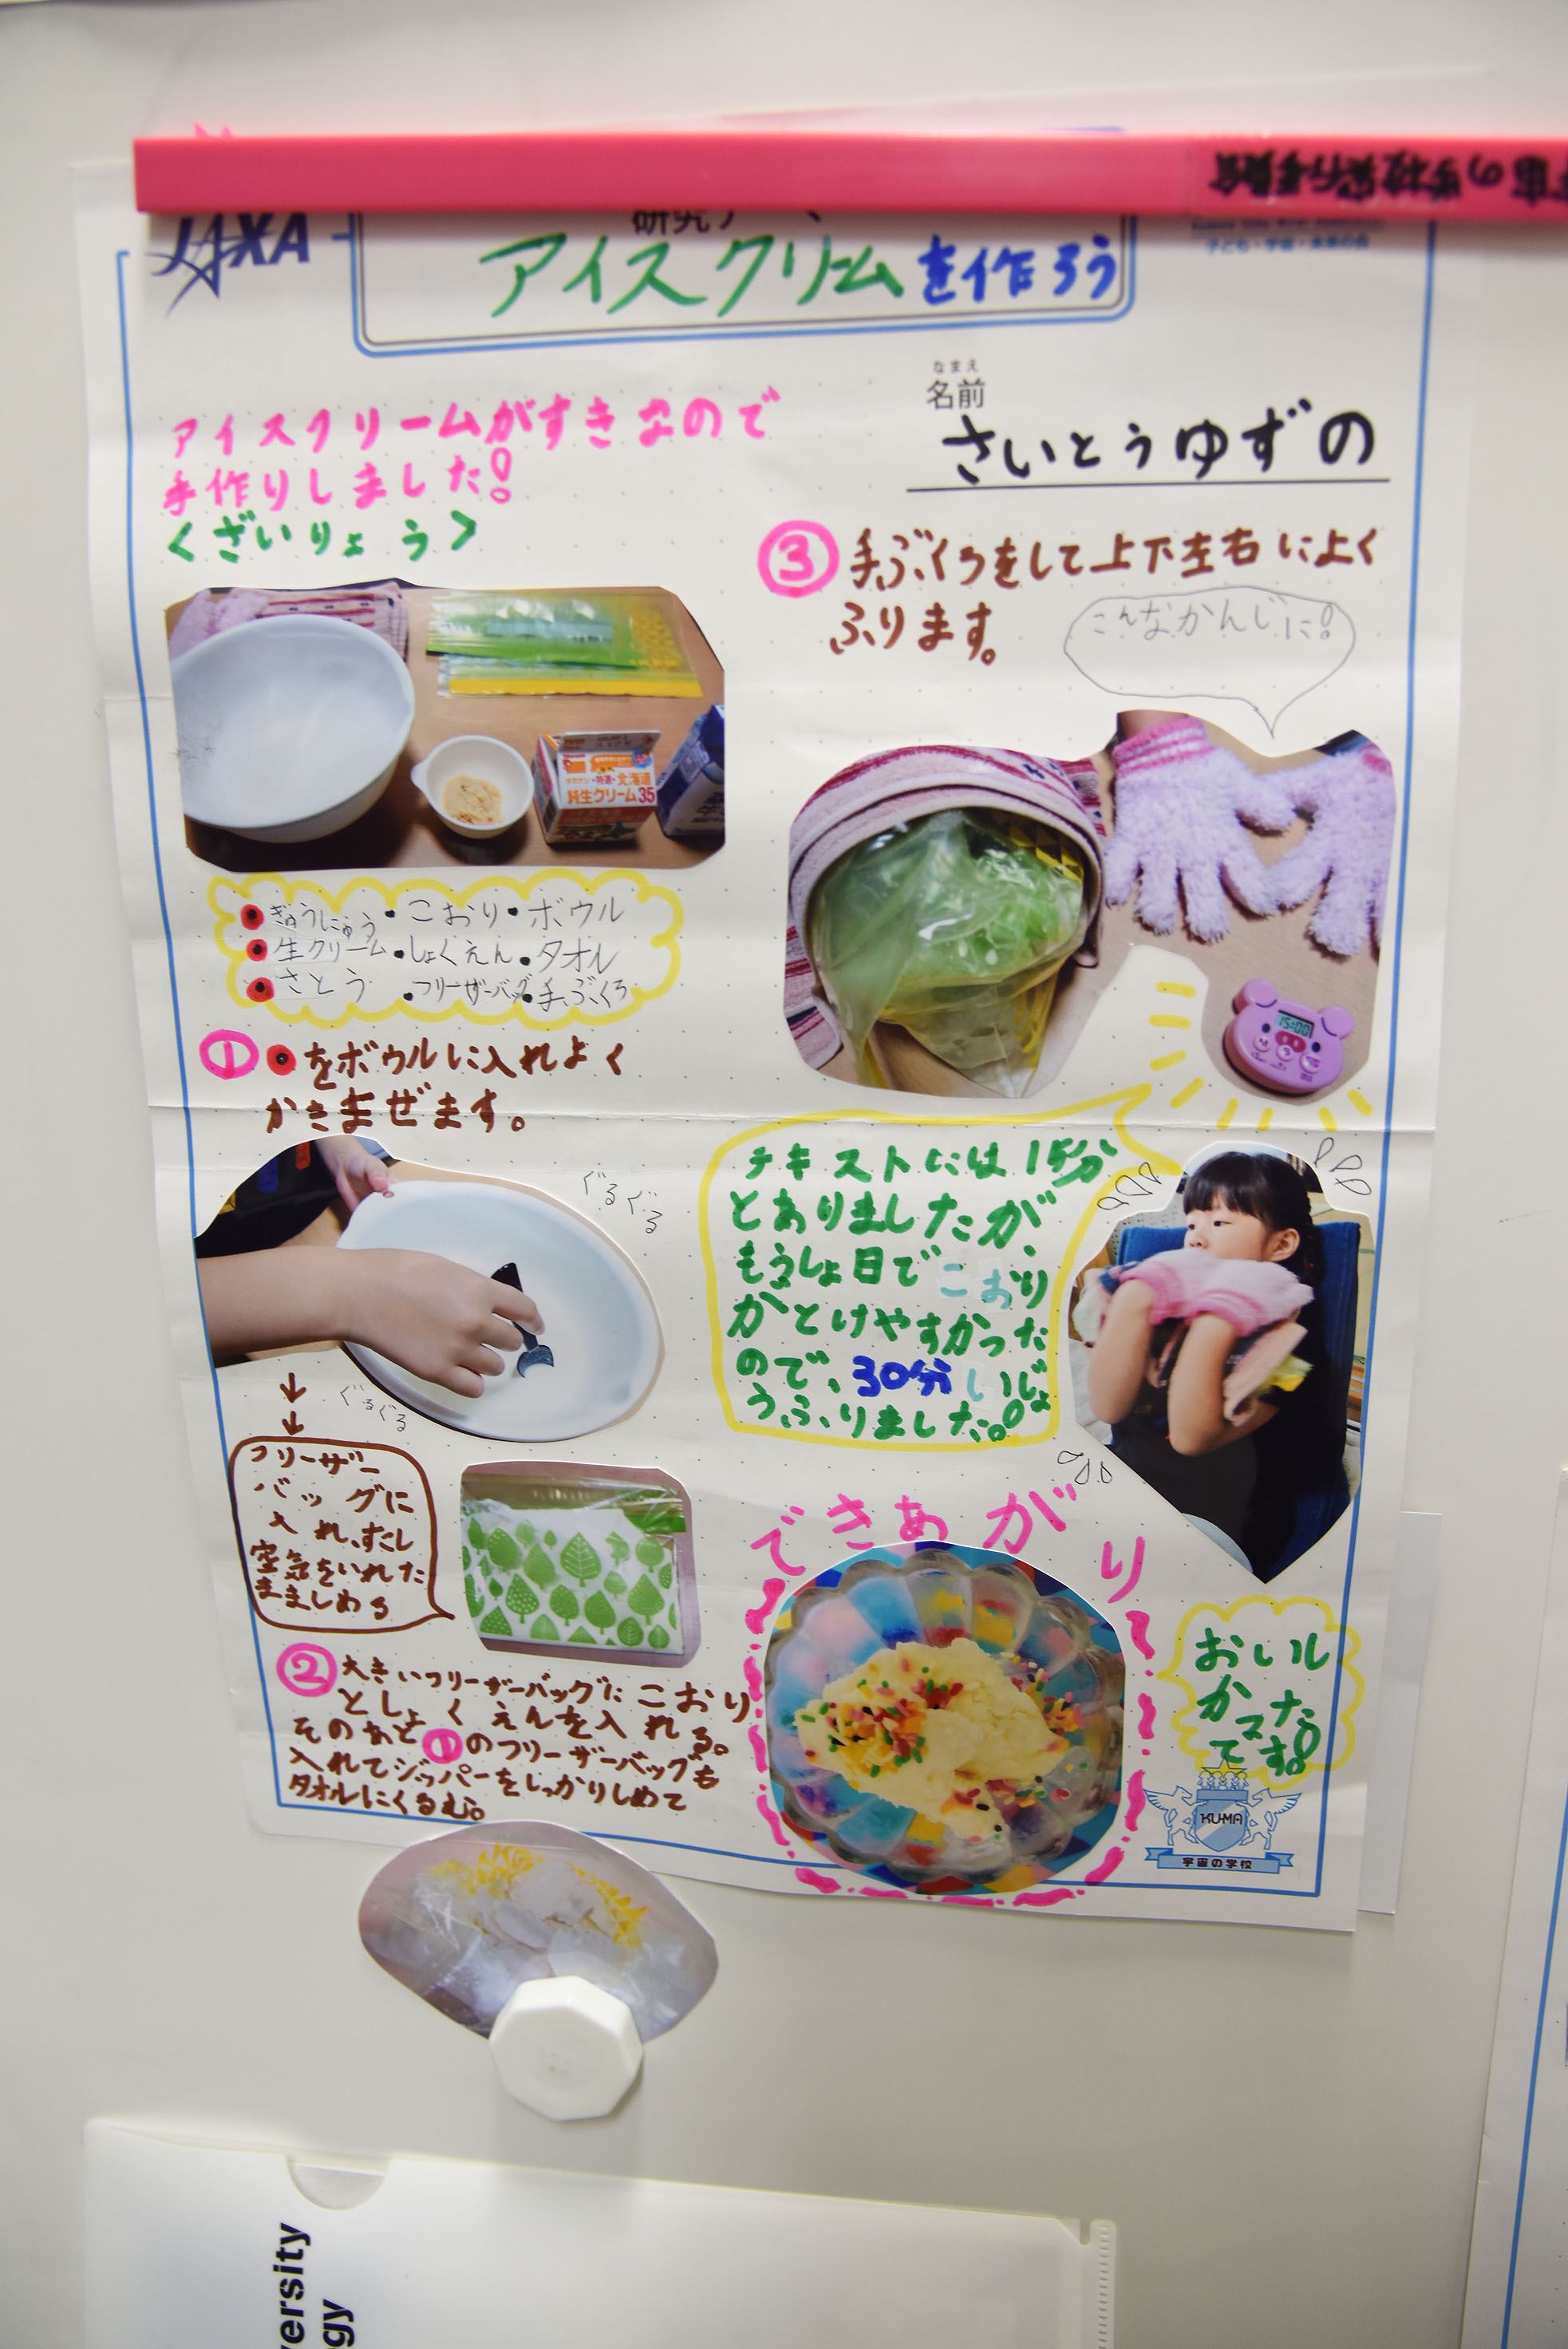 JAXA
研究テーマ
アイスクリームを作ろう
子ども・宇宙・未来の会
宇宙の学校実行委員会
なまえ
名前
さいとうゆずの
アイスクリームがすきなので
手作りしました!
<ざいりょう>
北海道
純生クリーム35
ぎゅうにゅう・こおり・ボウル
生クリーム・しょくえん・タオル
さとう・フリーザーバッグ・手ぶくろ
①●をボウルに入れよく
かきまぜます。
ぐるぐる
ぐるぐる
↓
↓
フリーザー
バッグに
入れ、すこし
空気をいれた
まましめる
②大きいフリーザーバッグにこおり
としょくえんを入れる。
そのあと①のフリーザーバッグも
入れてジッパーをしっかりしめて
タオルにくるむ。
③手ぶくろをして上下左右によく
ふります。
こんなかんじに!
15:00
テキストには15分
とありましたが、
もうしょ日でこおり
がとけやすかった
ので、30分いじょ
うふりました!
できあがり
おいし
かった
です!
KU-MA
宇宙の学校
versity
gy